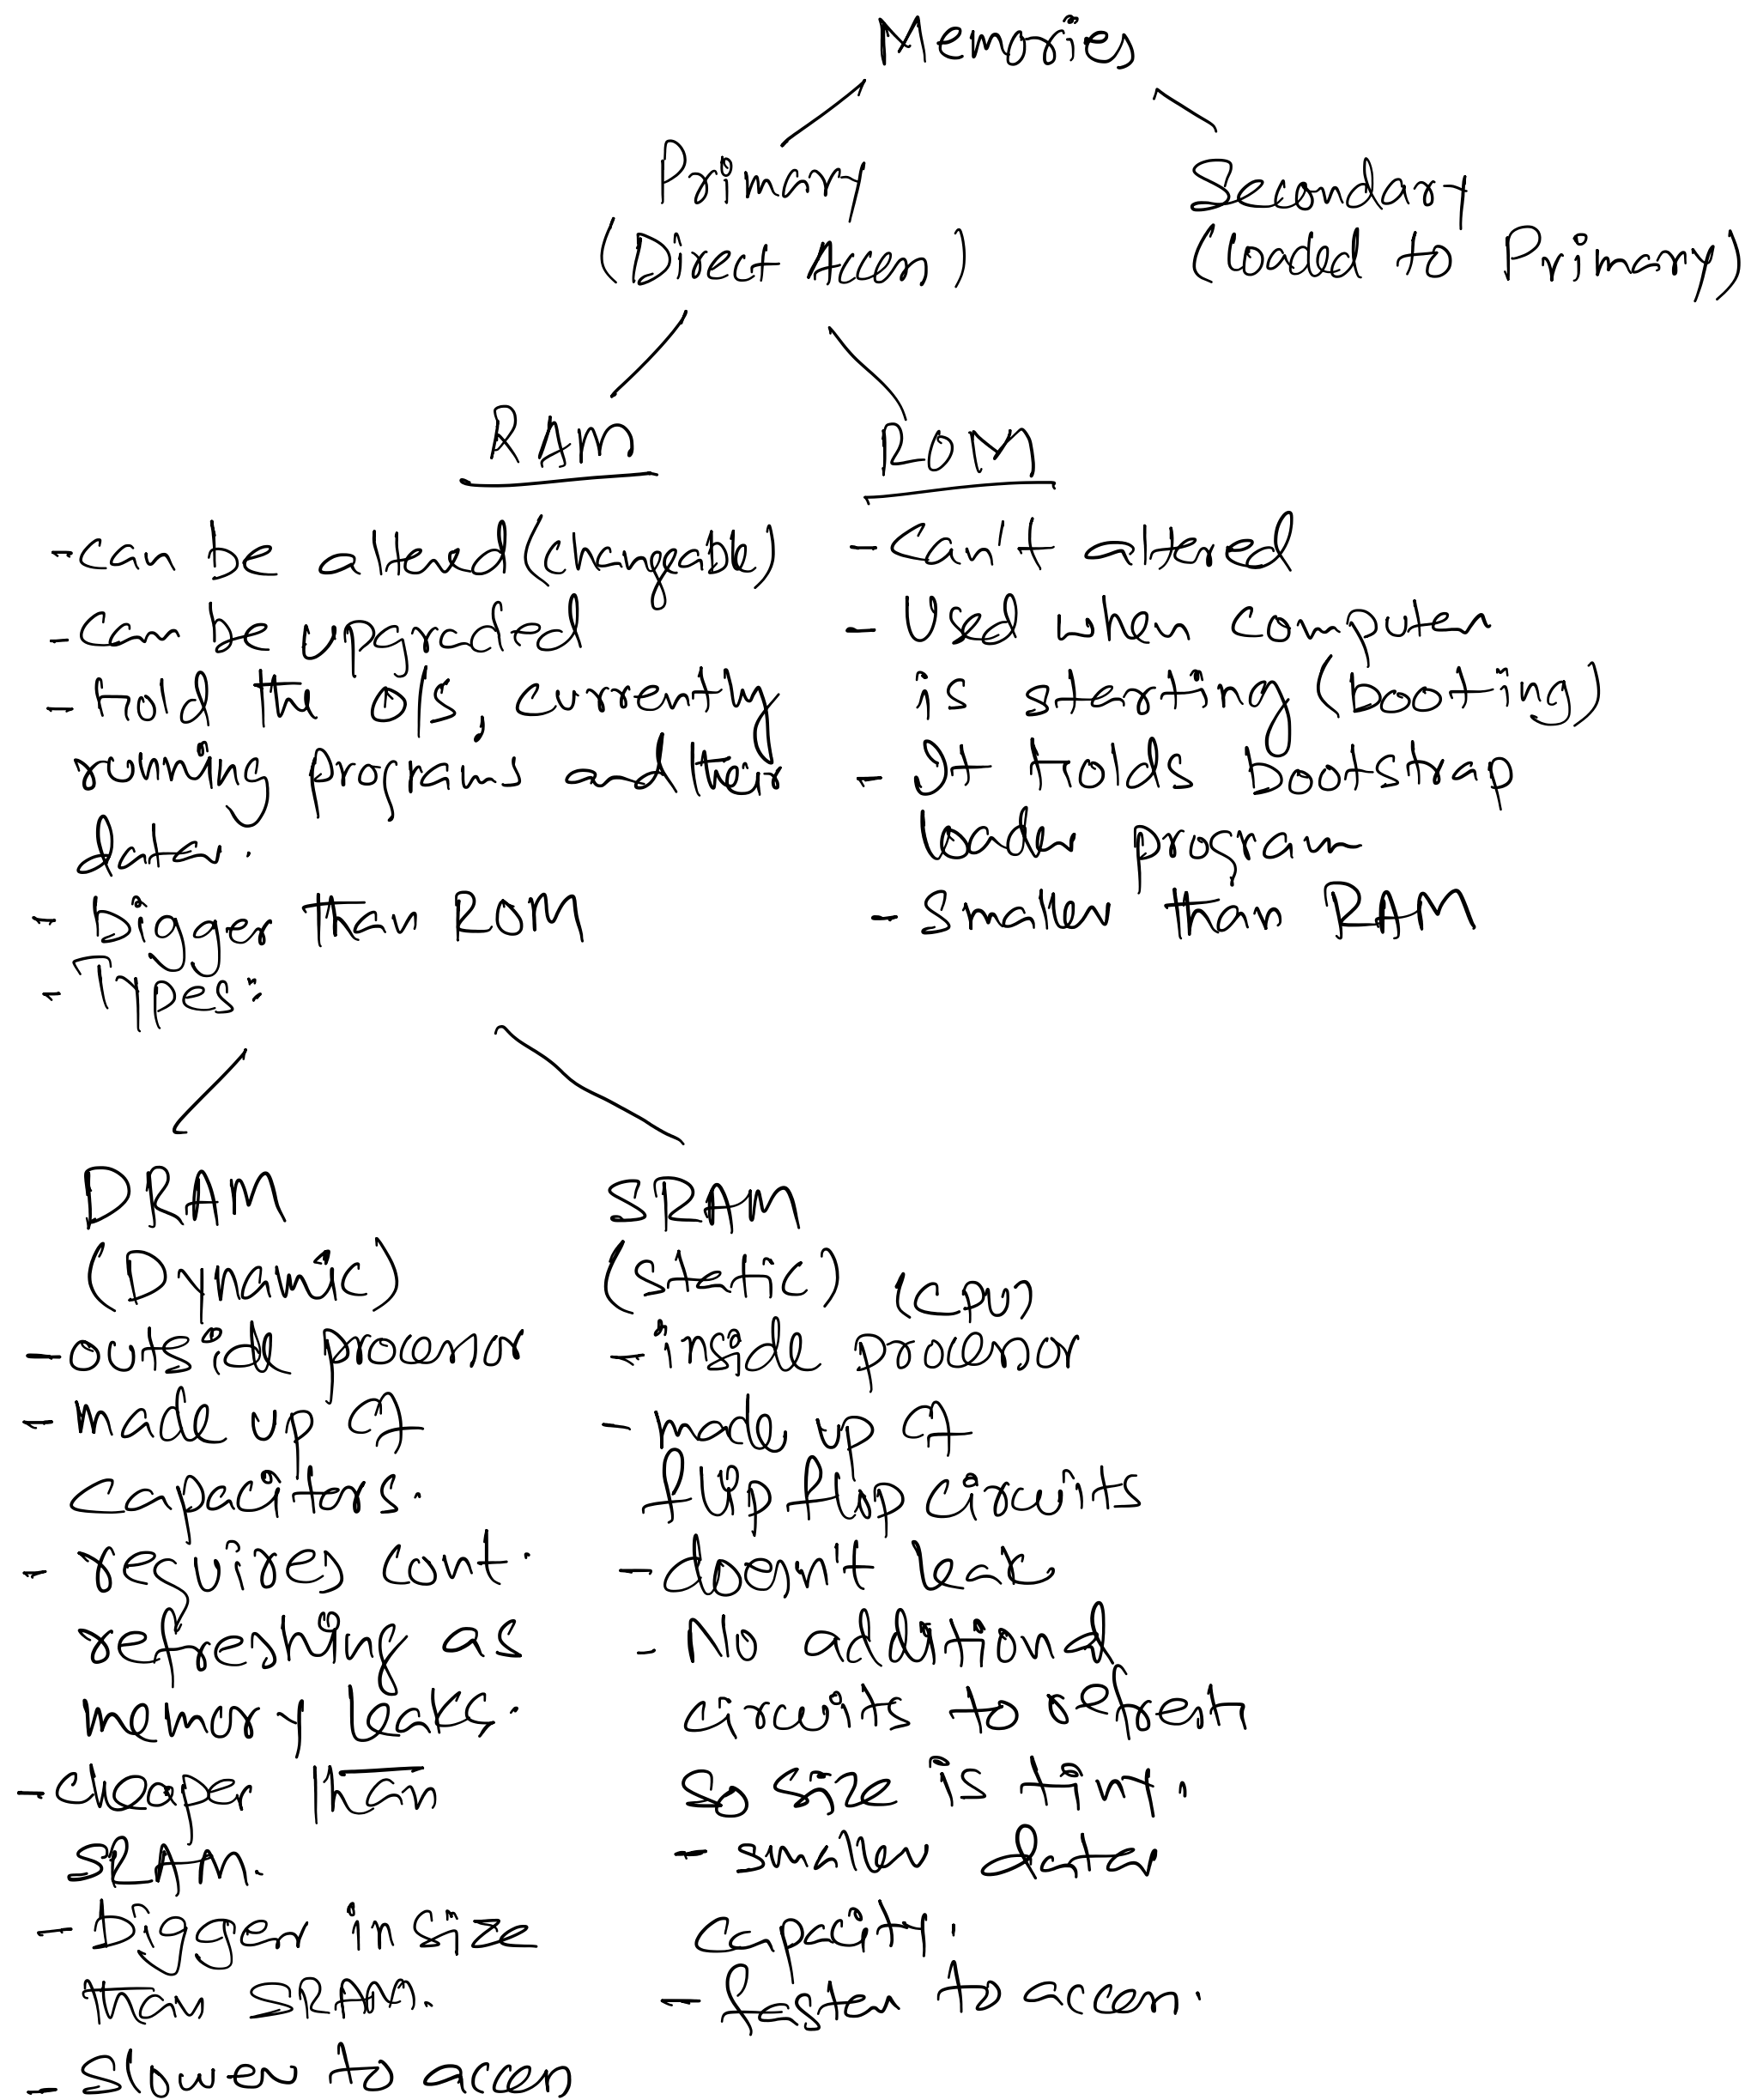 Memories
Primary
(Direct Access)
Secondary
(loaded to Primary)
RAM
- can be altered (changeable)
- can be upgraded
- hold the O/S, currently
running programs and their
data.
- bigger than ROM
- Types:
ROM
- Can't altered
- Used when computer
is starting (booting)
- It holds bootstrap
loader program
- smaller than RAM
DRAM
(Dynamic)
- outside processor
- made up of
capacitors.
- requires cont.
refreshing as
memory leaks.
- cheaper than
SRAM.
- bigger in size
than SRAM.
- Slower to access
SRAM
(static)
(CPU)
- inside processor
- made up of
flip flop circuits
- doesn't leak
- No additional
circuits to refresh
so size is tiny.
- smaller data
capacity.
- faster to access.